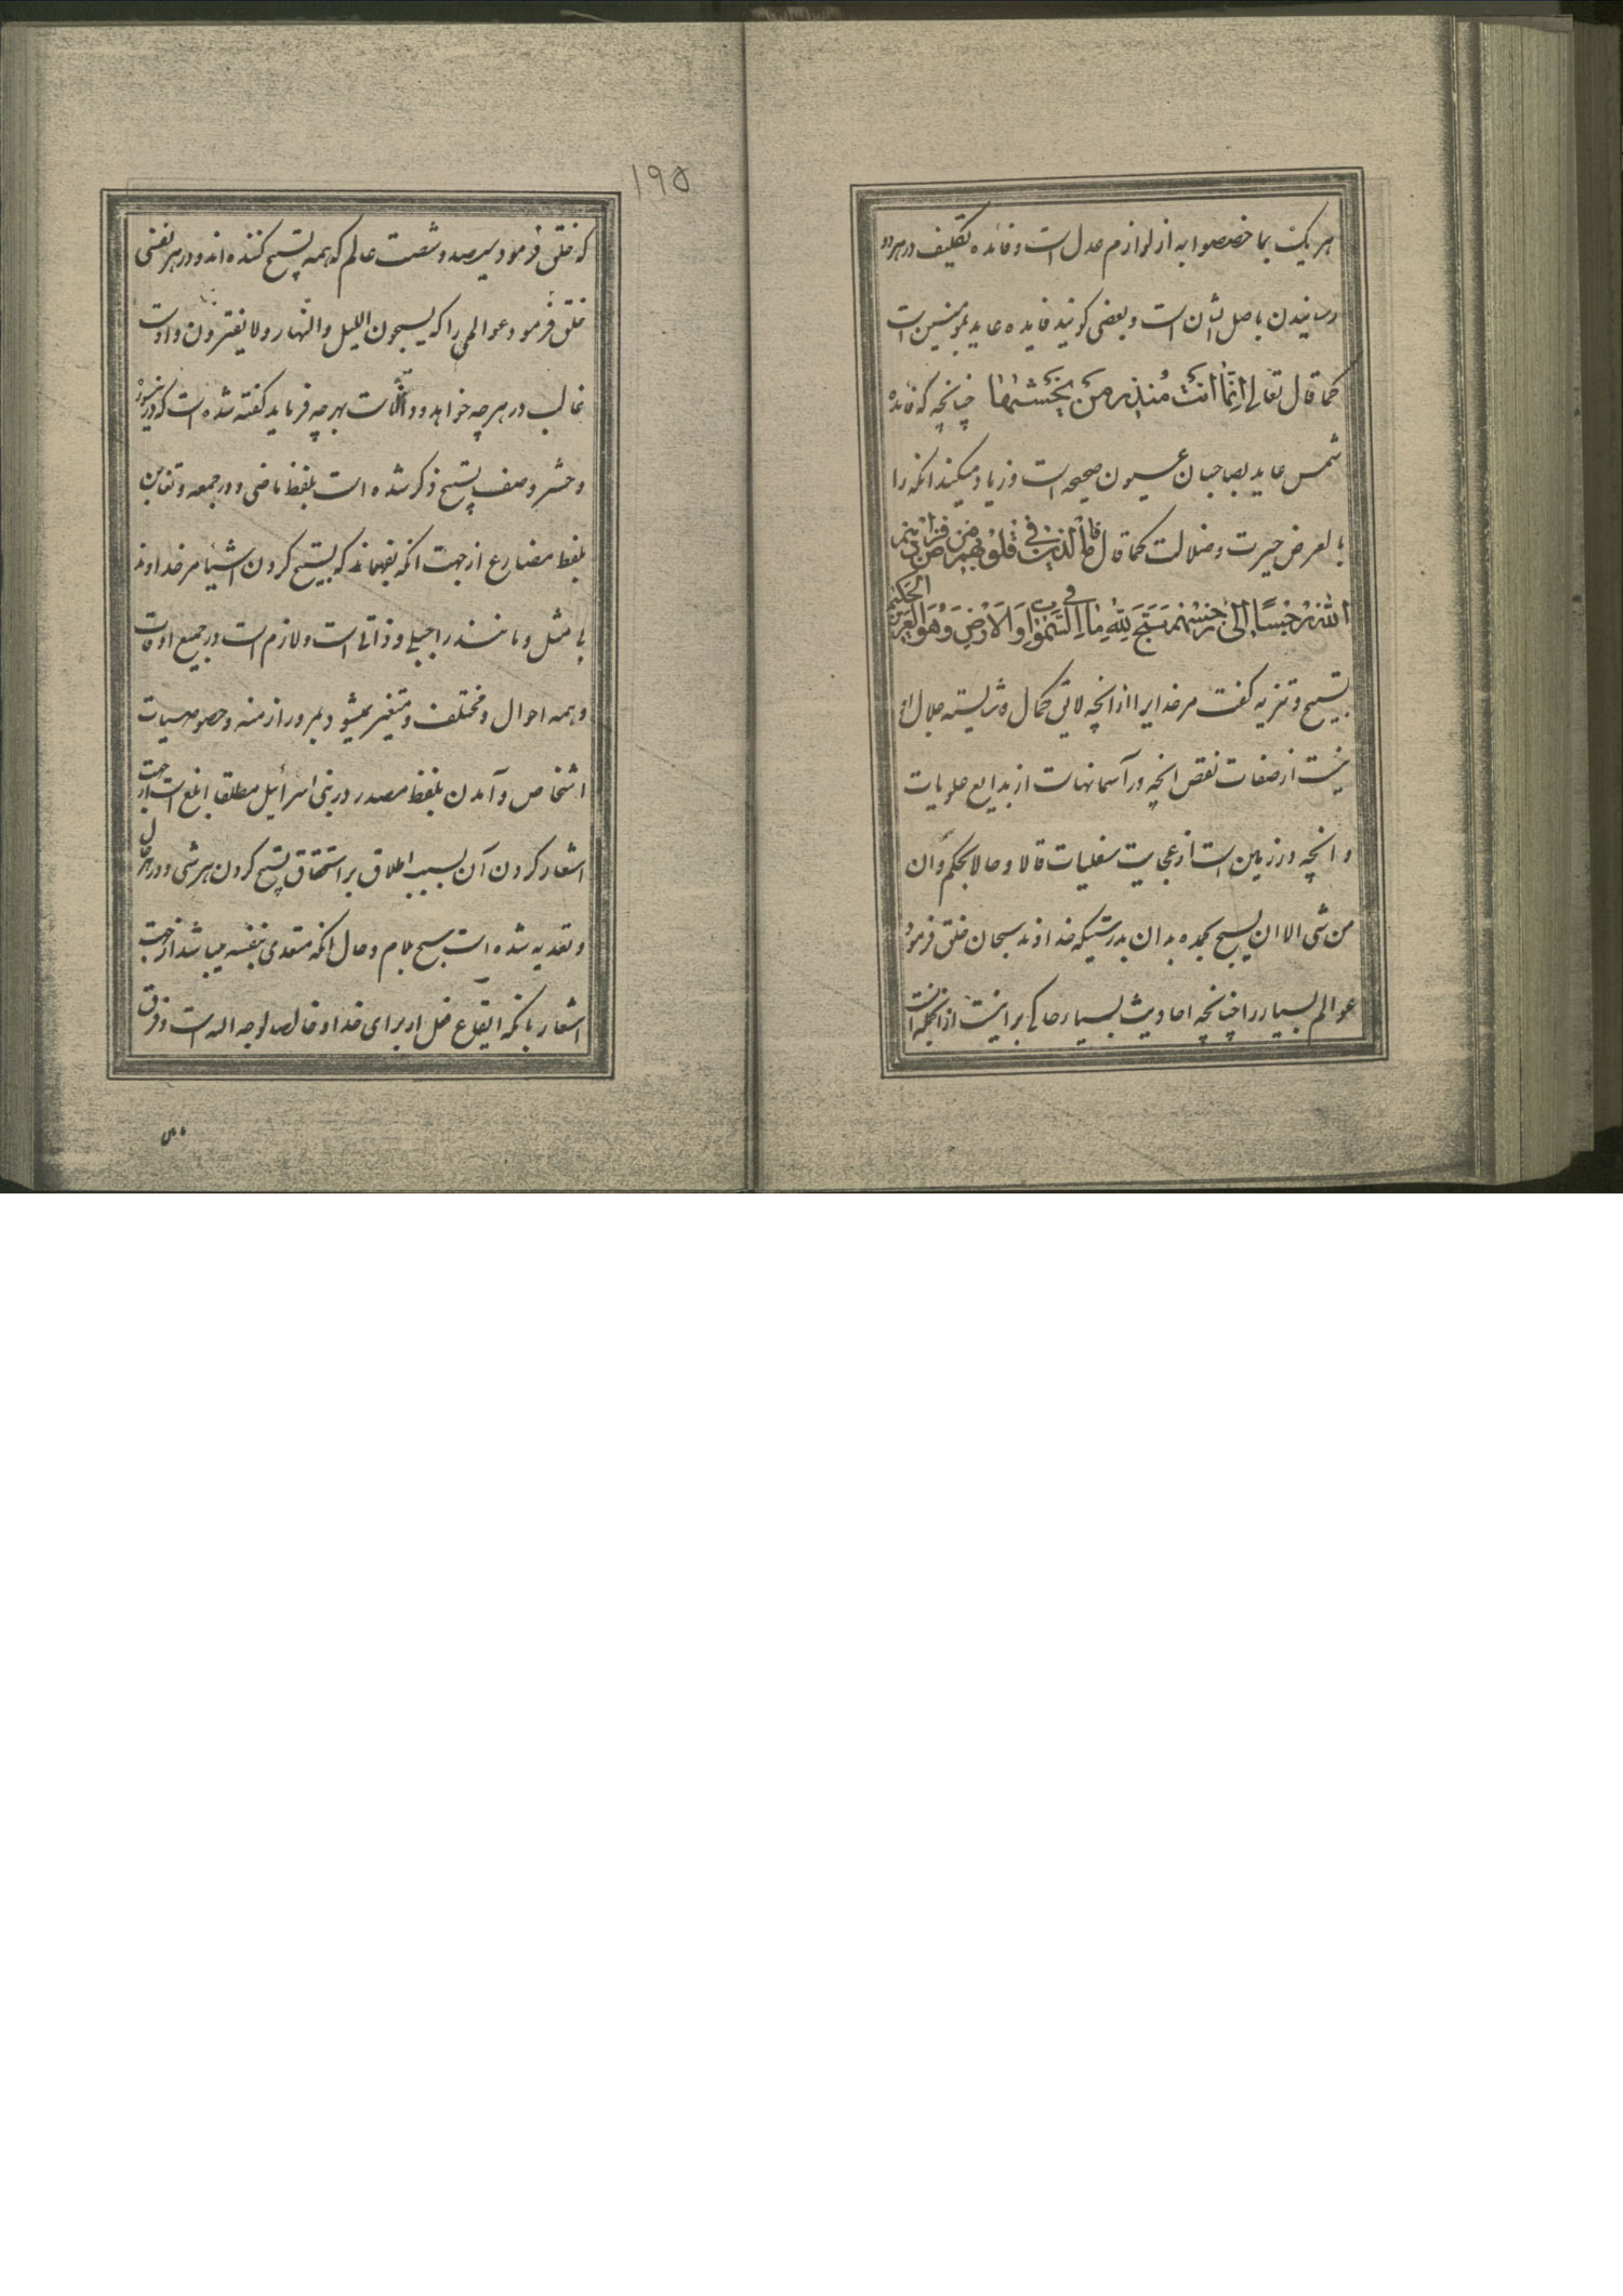 هر یک بما خصصوا به از لوازم عدل است و فائده تکلیف در هر دو
رسانیدن باصل ایشان است و بعضی کویند فایده عاید بمومنین است
کما قال تعالی انما انت منذر من یخشیها چنانچه که فائده
شمس عاید بصاحبان عیون صحیحه است و زیاد میکند انکه را
بالعرض حیرت و ضلالت کما قال فاما الذین فی قلوبهم مرض فزادتهم
الله رجسا الی رجسهم سبح لله ما فی السموات و الارض و هو العزیز الحکیم
تسبیح و تنزیه کفت مر خدایرا از انچه لائق کمال و شایسته جلال او
نیست از صفات نقص انچه در آسمانهاست از بدایع علویات
و انچه در زمین است از عجایب سفلیات قالا و حالا بحکم و ان
من شی الا ان یسبح بحمده بدان بدرستیکه خداوند سبحان خلق فرمود
عوالم بسیار را چنانچه احادیث بسیار حاکی براینست از انجمله انست
۱۹۵
که خلق فرمود سیصد و شصت عالم که همه تسبیح کننده اند و در هر نفسی
خلق فرمود عوالمی را که یسبحون اللیل و النهار و لا یفترون و اوست
غالب در هر چه خواهد و دانا است بهر چه فرماید کفته شده است که در
و حشر و صف تسبیح ذکر شده است بلفظ ماضی و در جمعه و تغابن
بلفظ مضارع از جهت انکه بفهماند که تسبیح کردن اشیا مر خداوند
بی مثل و مانند را جبلی و ذاتی است و لازم است در جمیع اوقات
و همه احوال و مختلف و متغیر نمیشود بمرور ازمنه و خصوصیات
اشخاص و آمدن بلفظ مصدر در بنی اسرائیل مطلقا ابلغ است از جهت
اشعار کردن آن بسبب اطلاق بر استحقاق تسبیح کردن هر شی و در هر حال
و تعدیه شده است سبح بلام و حال انکه متعدی بنفسه میباشد از جهت
اشعار بانکه ایقاع فعل از برای خدا و خالصا لوجه الله است و فرق